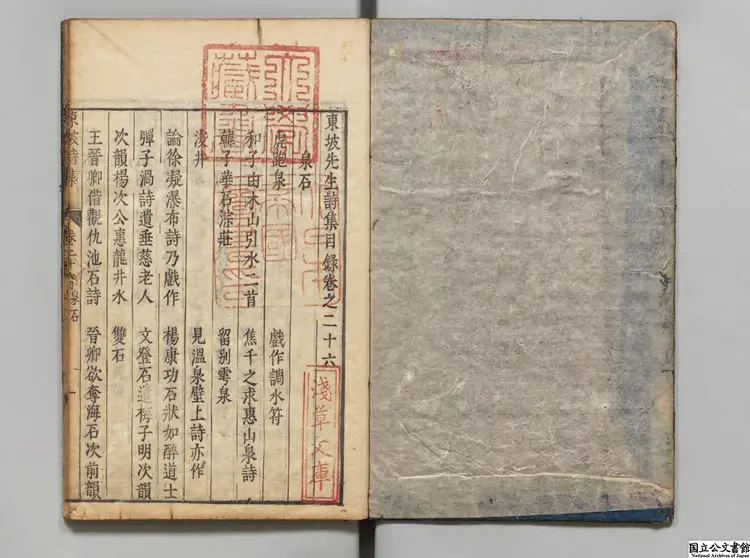 東坡先生詩集目錄卷之二十六
泉石
虎跑泉 戲作調水符
和子由木山引水二首 焦千之求惠山泉詩
韓子華石淙莊 留別雩泉
浚井 見溫泉壁上詩亦作
論徐凝瀑布詩乃戲作 楊康功石狀如醉道士
彈子渦詩遺垂慈老人 文登石遺梅子明次韻
次韻楊次公惠龍井水 雙石
王晉卿借觀仇池石詩 晉卿欲奪海石次前韻
東坡詩集
泉石
淺草文庫
国立公文書館
National Archives of Japan